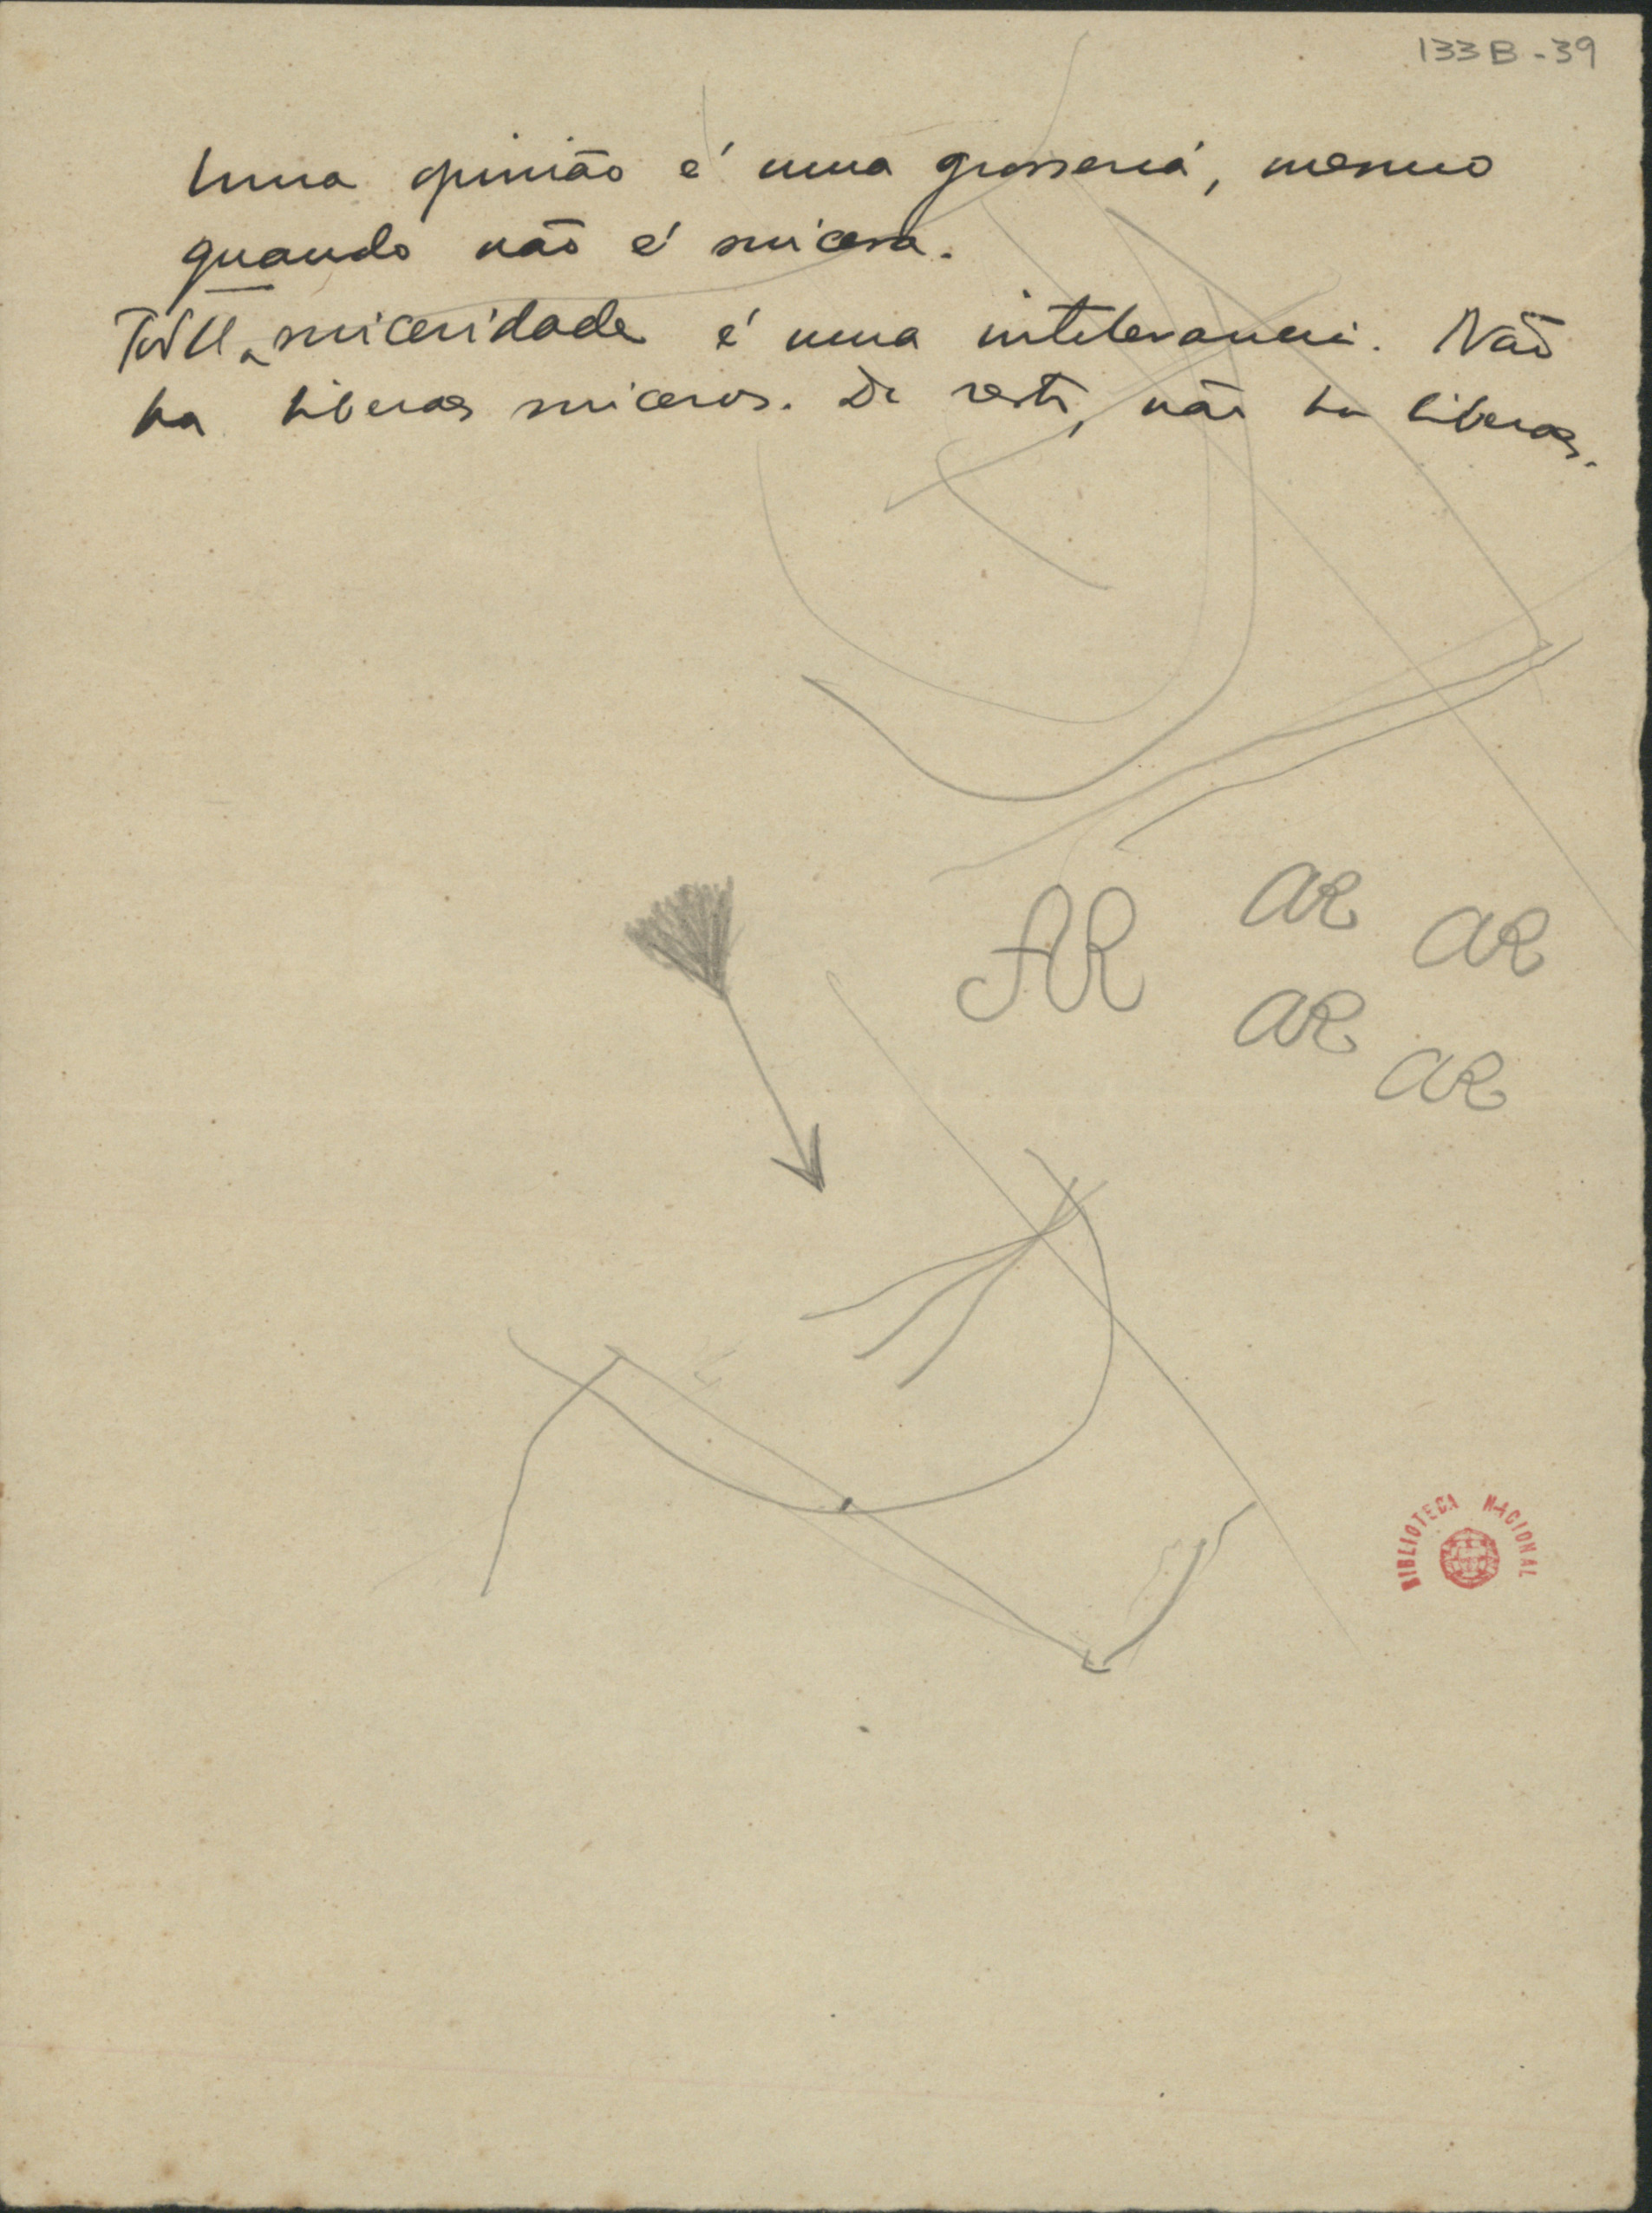 133B-39
Uma opinião é uma grosseria, mesmo
quando não é sincera.
Toda a sinceridade é uma intolerancia. Não
ha liberaes sinceros. De resto, não ha liberaes.
AR AR AR
AR AR
BIBLIOTECA NACIONAL